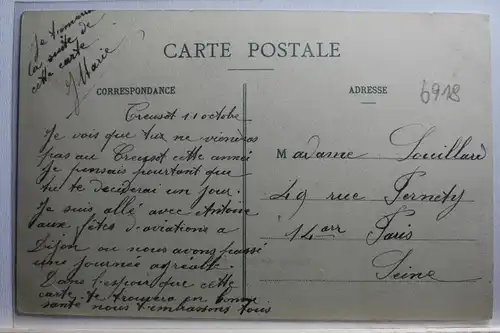 Je t'envoie
la suite de
cette carte
J Marie
CARTE POSTALE
CORRESPONDANCE
ADRESSE
6918
Creusot 11 octobre
Je vois que tu ne viendras
pas au Creusot cette année
Je pensais pourtant que
tu te deciderai un jour.
Je suis allé avec Antoine
aux fêtes d'aviations a
Dijon ou nous avons passé
une journée agréable.
Dans l'espoir que cette
carte te trouvera en bonne
santé nous t'embrassons tous
Madame Souillard
49 rue Pernety
14arr Paris
Seine